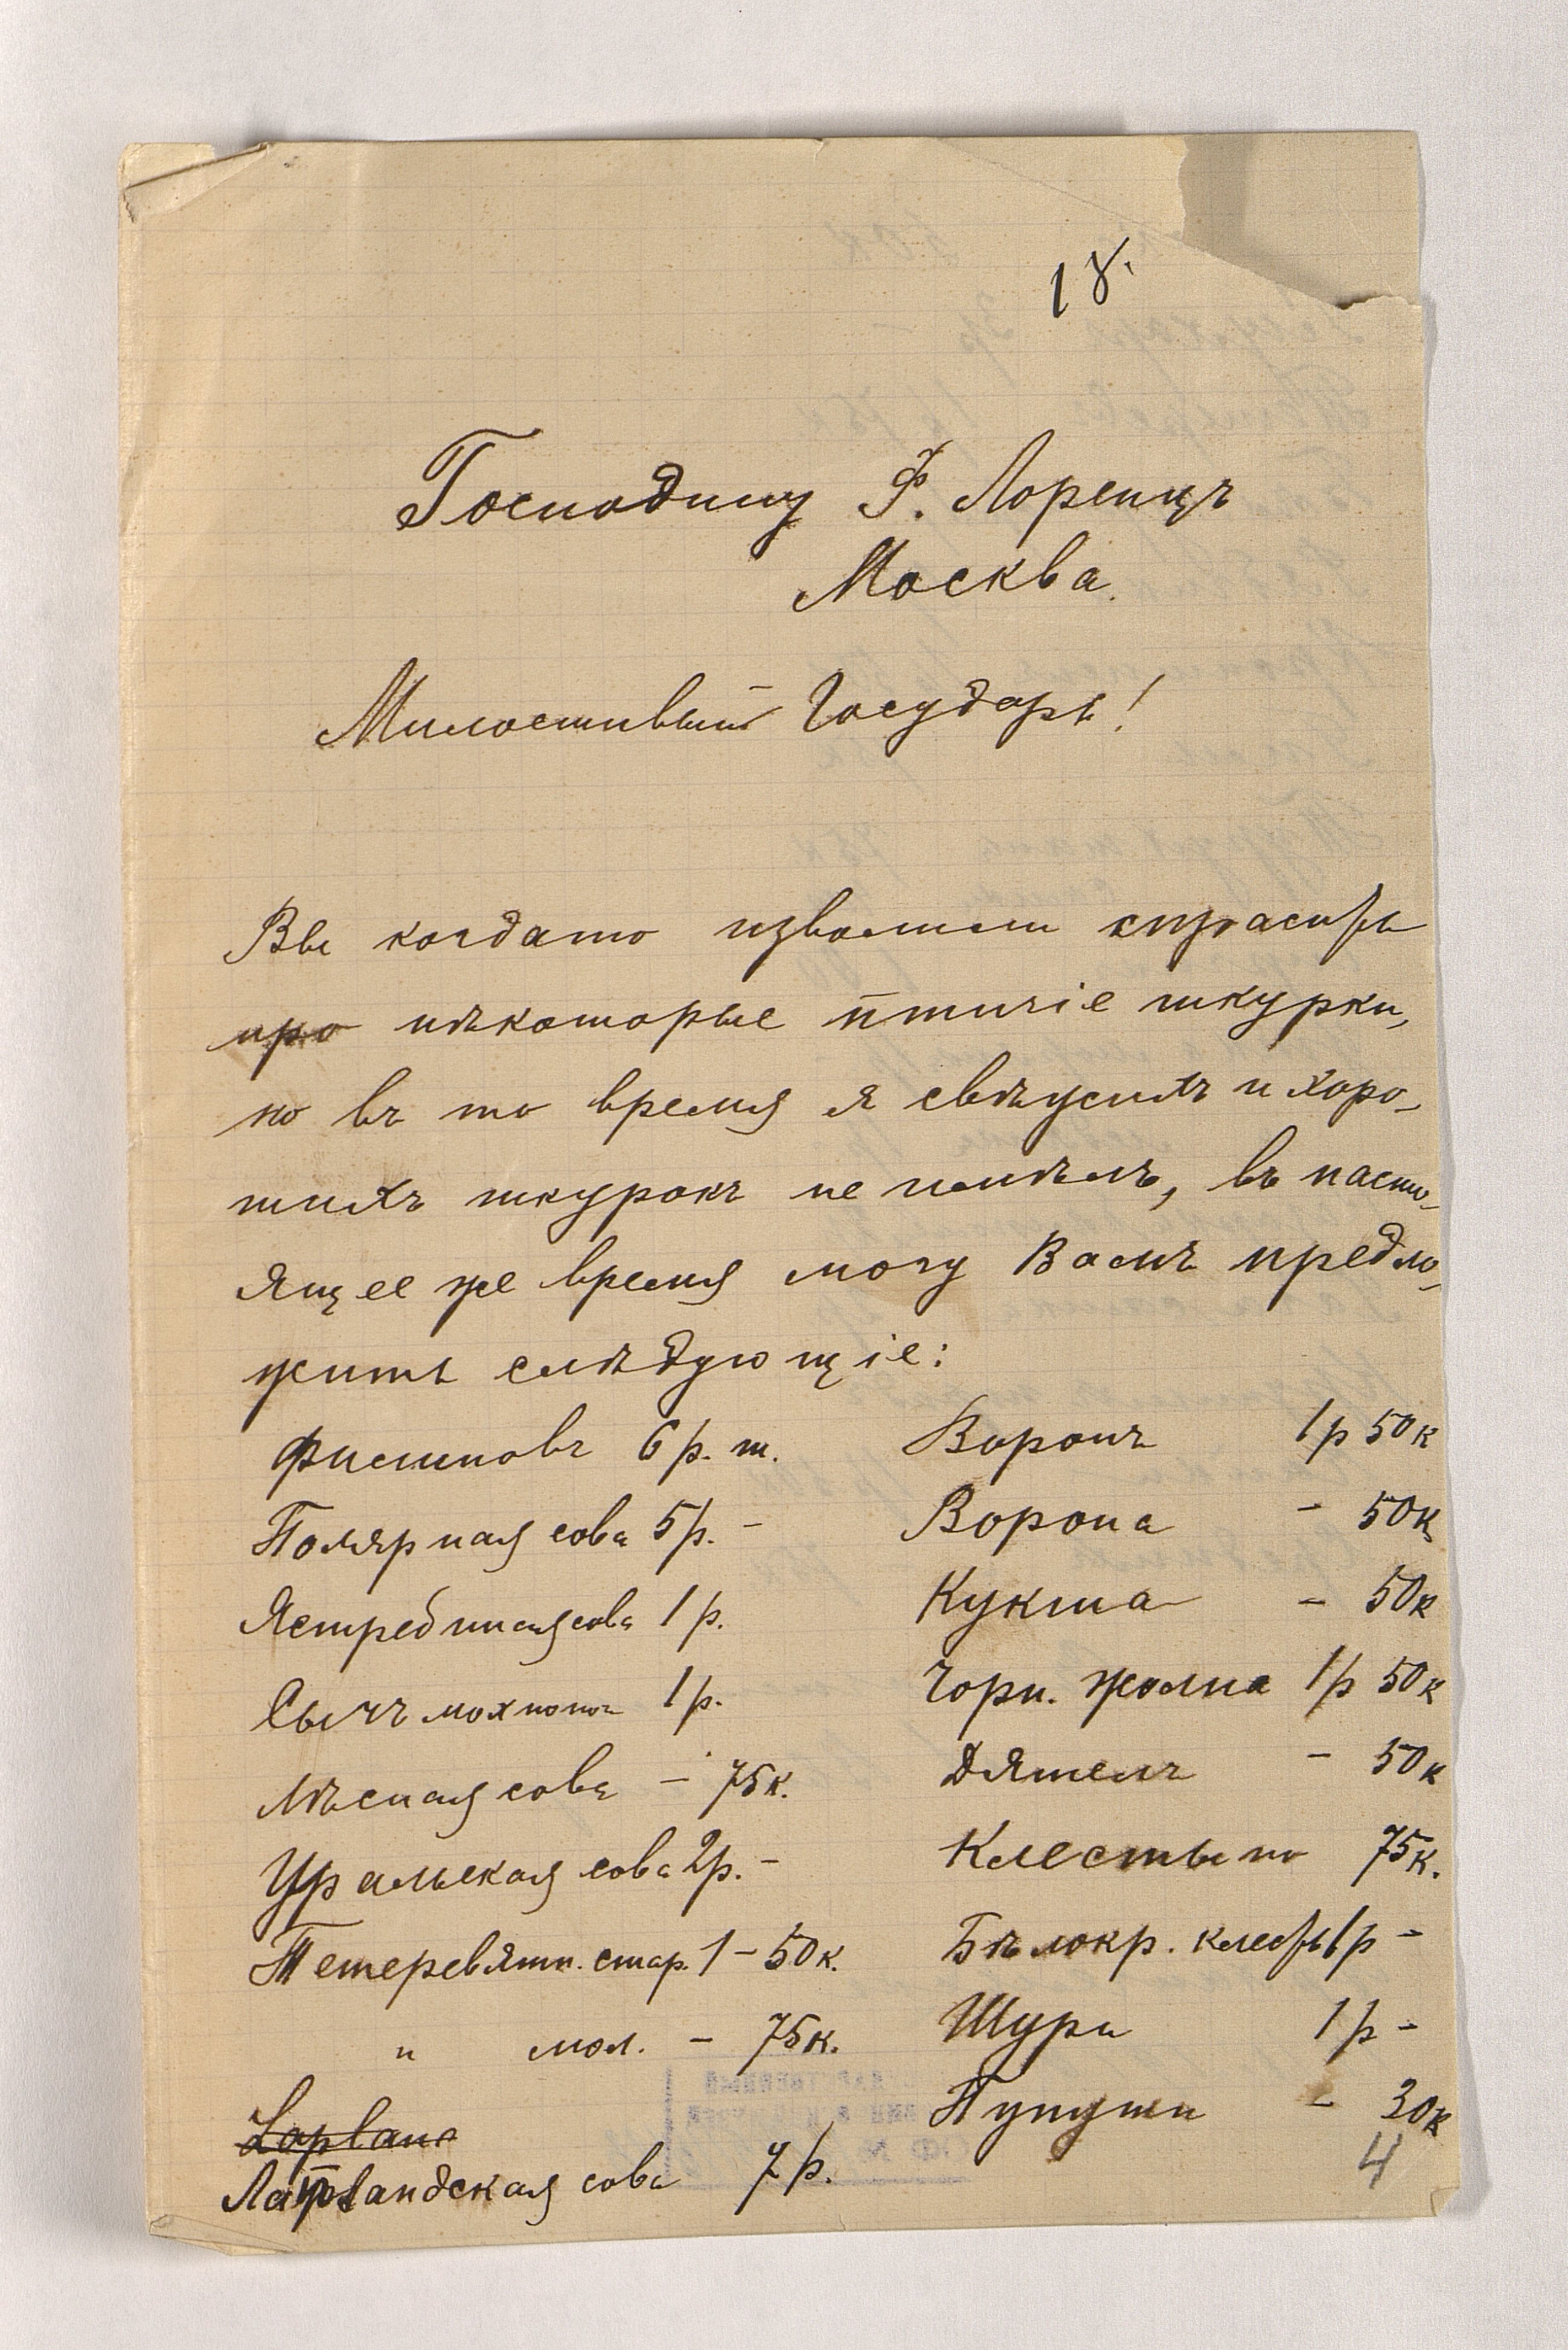 18.
Господину Ф. Лоренцъ
Москва.
Милостивый Государь!
Вы когдато изволили спрасить
про нѣкоторые птичіе шкурки,
но въ то время я свѣжихъ и хоро-
шихъ шкурокъ не имѣлъ, въ насто-
ящее же время могу Вамъ предло-
жить слѣдующіе:
Филиновъ 6 р. ш.
Полярная сова 5 р. -
Ястребиная сова 1 р.
Сычъ мохноног 1 р.
Лѣсная сова - 75 к.
Уральская сова 2 р. -
Тетеревятн. стар. 1 - 50 к.
" мол. - 75 к.
Лапландская сова 7 р.
Воронъ 1 р 50 к
Ворона - 50 к
Кукша - 50 к
Чорн. жолна 1 р 50 к
Дятелъ - 50 к
Клесты по 75 к.
Бѣлокр. клесты 1 р -
Щуры 1 р -
30 к
4